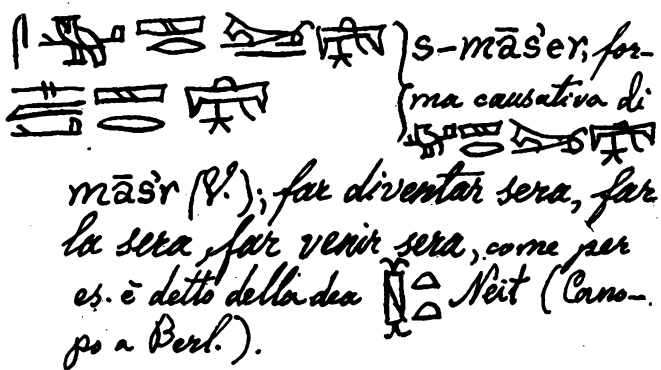 s-mās'er, for-
ma causativa di
mās'r (V.); far diventar sera, far
la sera, far venir sera, come per
es. è detto della dea Neit (Cano-
po a Berl.).